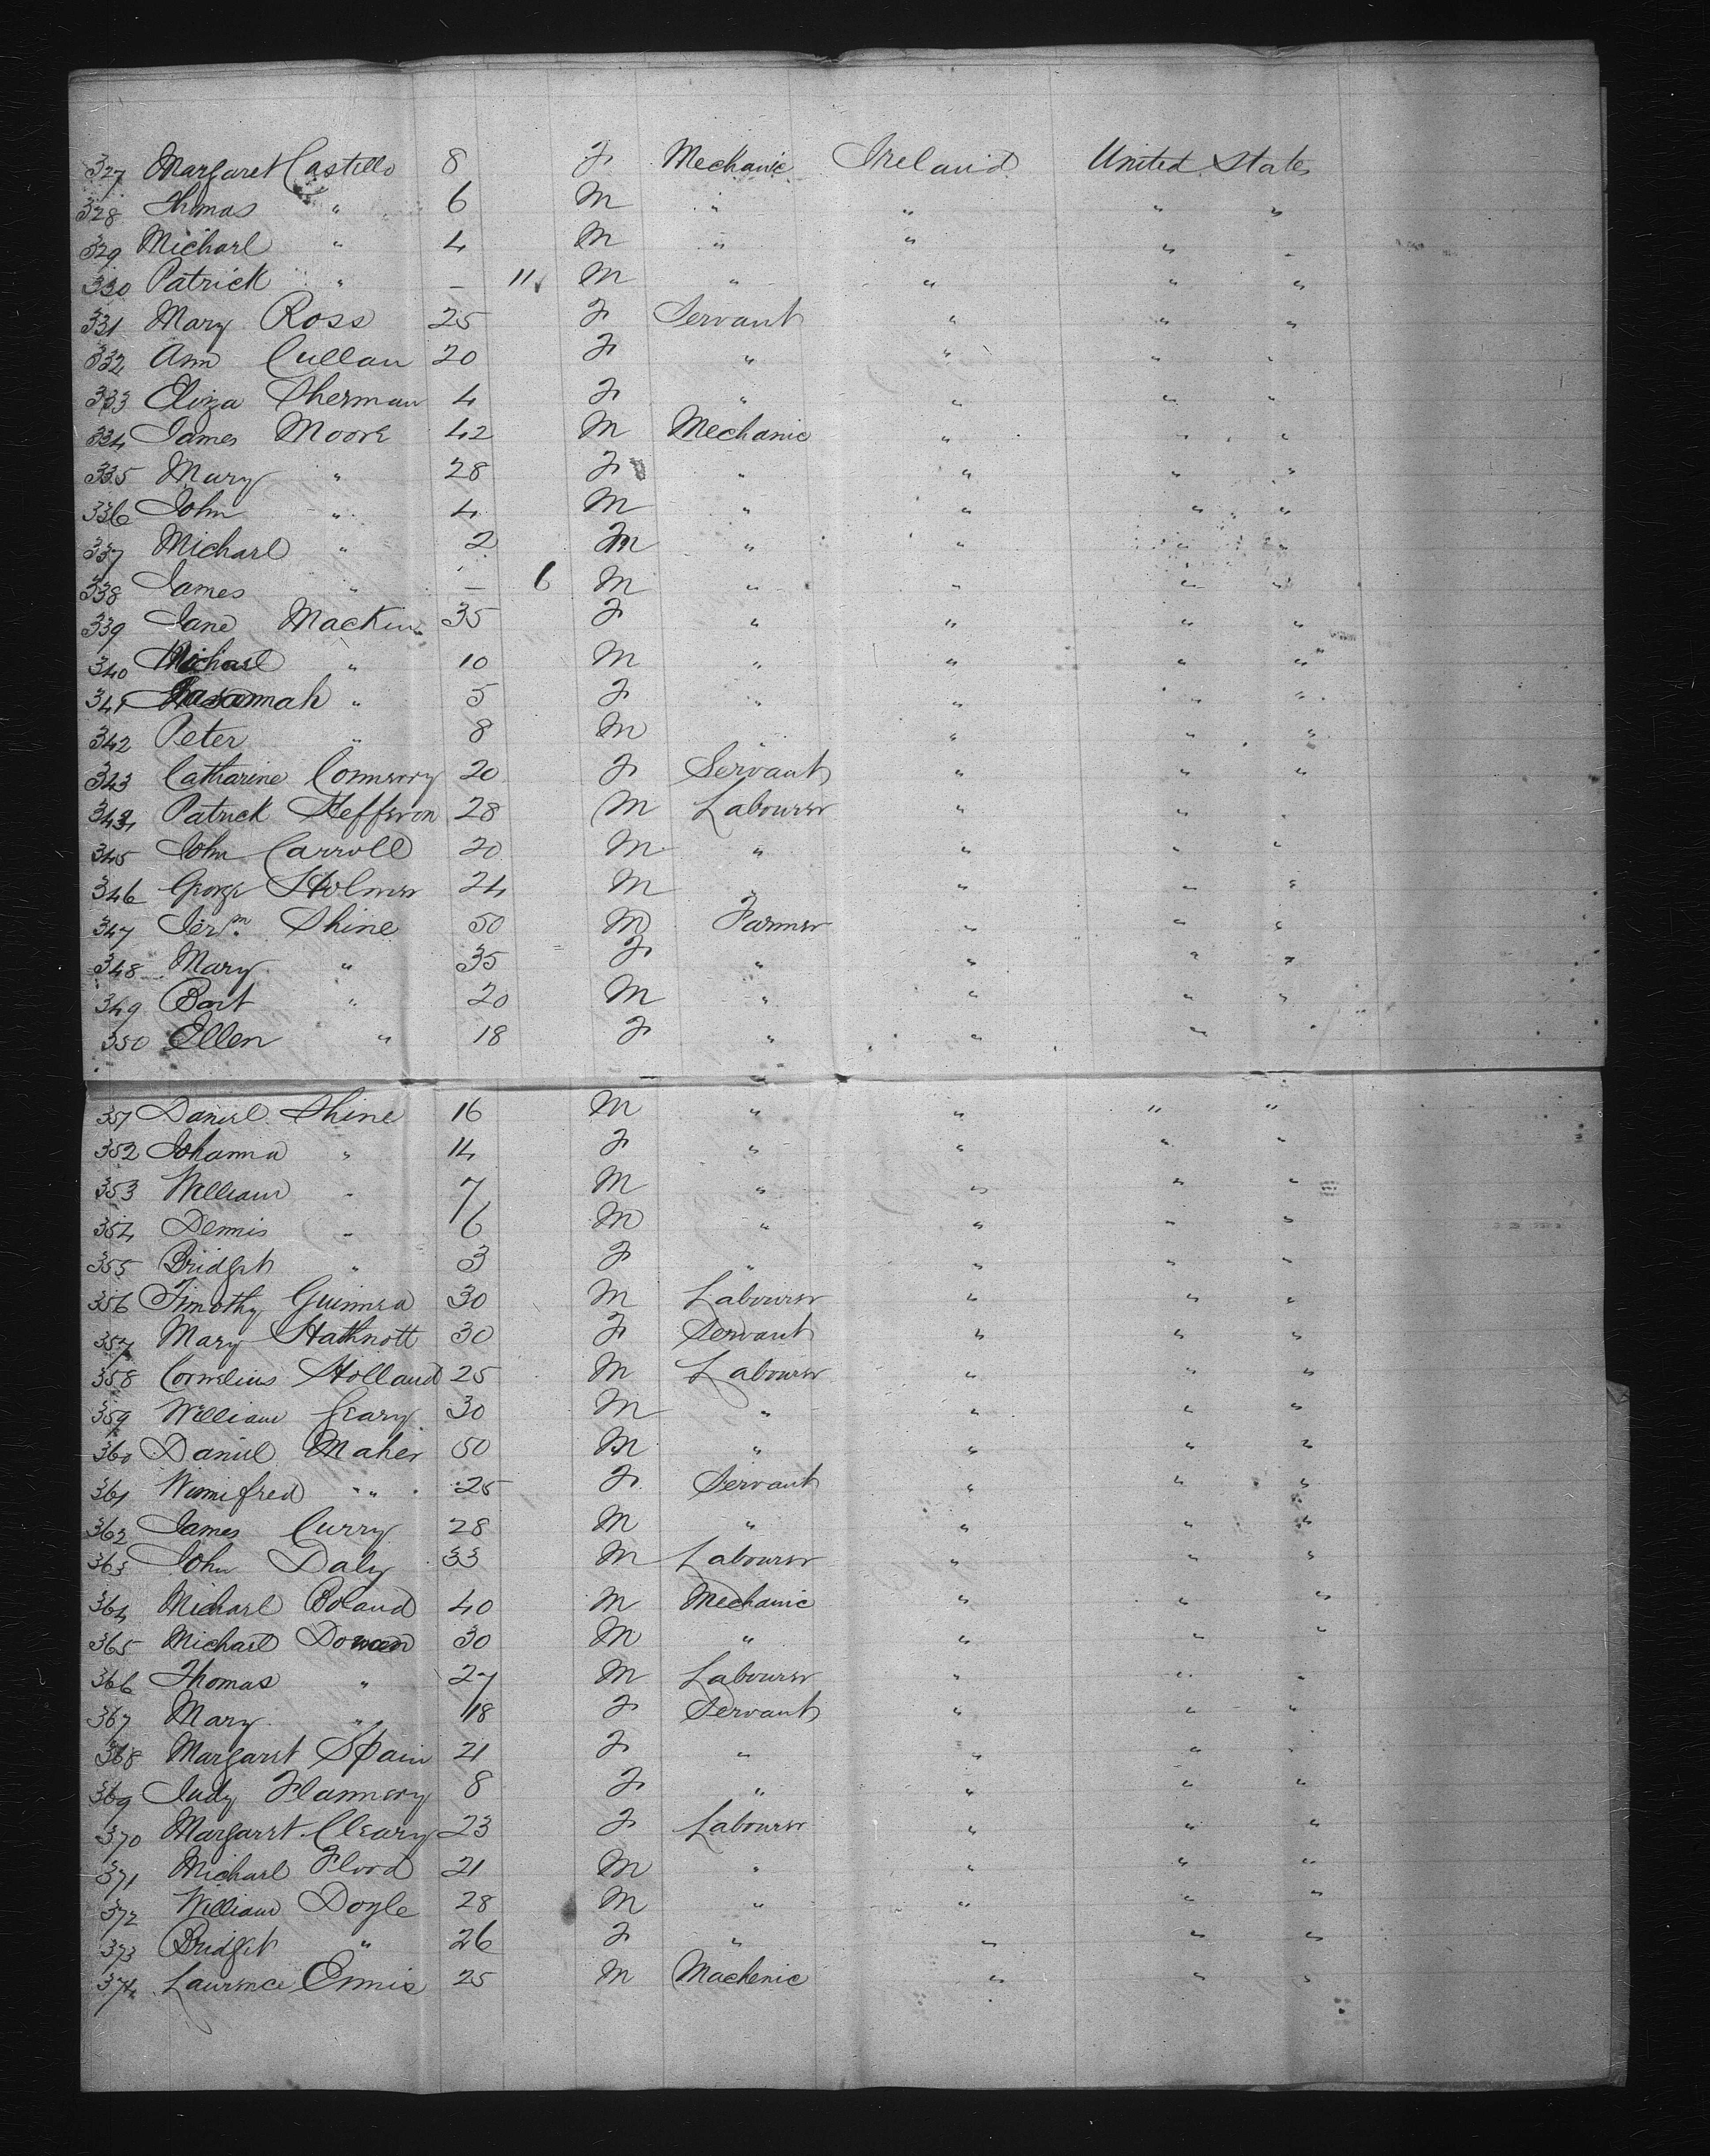 327 Margaret Castello 8 F Mechanic Ireland United States
328 Thomas " 6 M " " " "
329 Michael " 4 M " " " "
330 Patrick " - 11 M " " " "
331 Mary Ross 25 F Servant " " "
332 Ann Cullan 20 F " " " "
333 Eliza Sherman 4 F " " " "
334 James Moore 42 M Mechanic " " "
335 Mary " 28 F " " " "
336 John " 4 M " " " "
337 Michael " 2 M " " " "
338 James " - 6 M " " " "
339 Jane Mackin 35 F " " " "
340 Michael " 10 M " " " "
341 Susannah " 5 F " " " "
342 Peter " 8 M " " " "
343 Catharine Connerry 20 F Servant " " "
344 Patrick Hefferon 28 M Labourer " " "
345 John Carroll 20 M " " " "
346 George Holmes 24 M " " " "
347 Jerm. Shine 50 M Farmer " " "
348 Mary " 35 F " " " "
349 Bart " 20 M " " " "
350 Ellen " 18 F " " " "
351 Daniel Shine 16 M " " " "
352 Johanna " 14 F " " " "
353 William " 7 M " " " "
354 Dennis " 6 M " " " "
355 Bridget " 3 F " " " "
356 Timothy Guinnea 30 M Labourer " " "
357 Mary Hathnott 30 F Servant " " "
358 Cornelius Holland 25 M Labourer " " "
359 William Geary 30 M " " " "
360 Daniel Maher 50 M " " " "
361 Winnifred " 25 F Servant " " "
362 James Curry 28 M " " " "
363 John Daly 33 M Labourer " " "
364 Michael Boland 40 M Mechanic " " "
365 Michael 30 M " " " "
366 Thomas " 27 M Labourer " " "
367 Mary " 18 F Servant " " "
368 Margaret Spain 21 F " " " "
369 Judy Flannery 8 F " " " "
370 Margaret Cleary 23 F Labourer " " "
371 Michael Flood 21 M " " " "
372 William Doyle 28 M " " " "
373 Bridget " 26 F " " " "
374 Laurence Ennis 25 M Machenic " " "